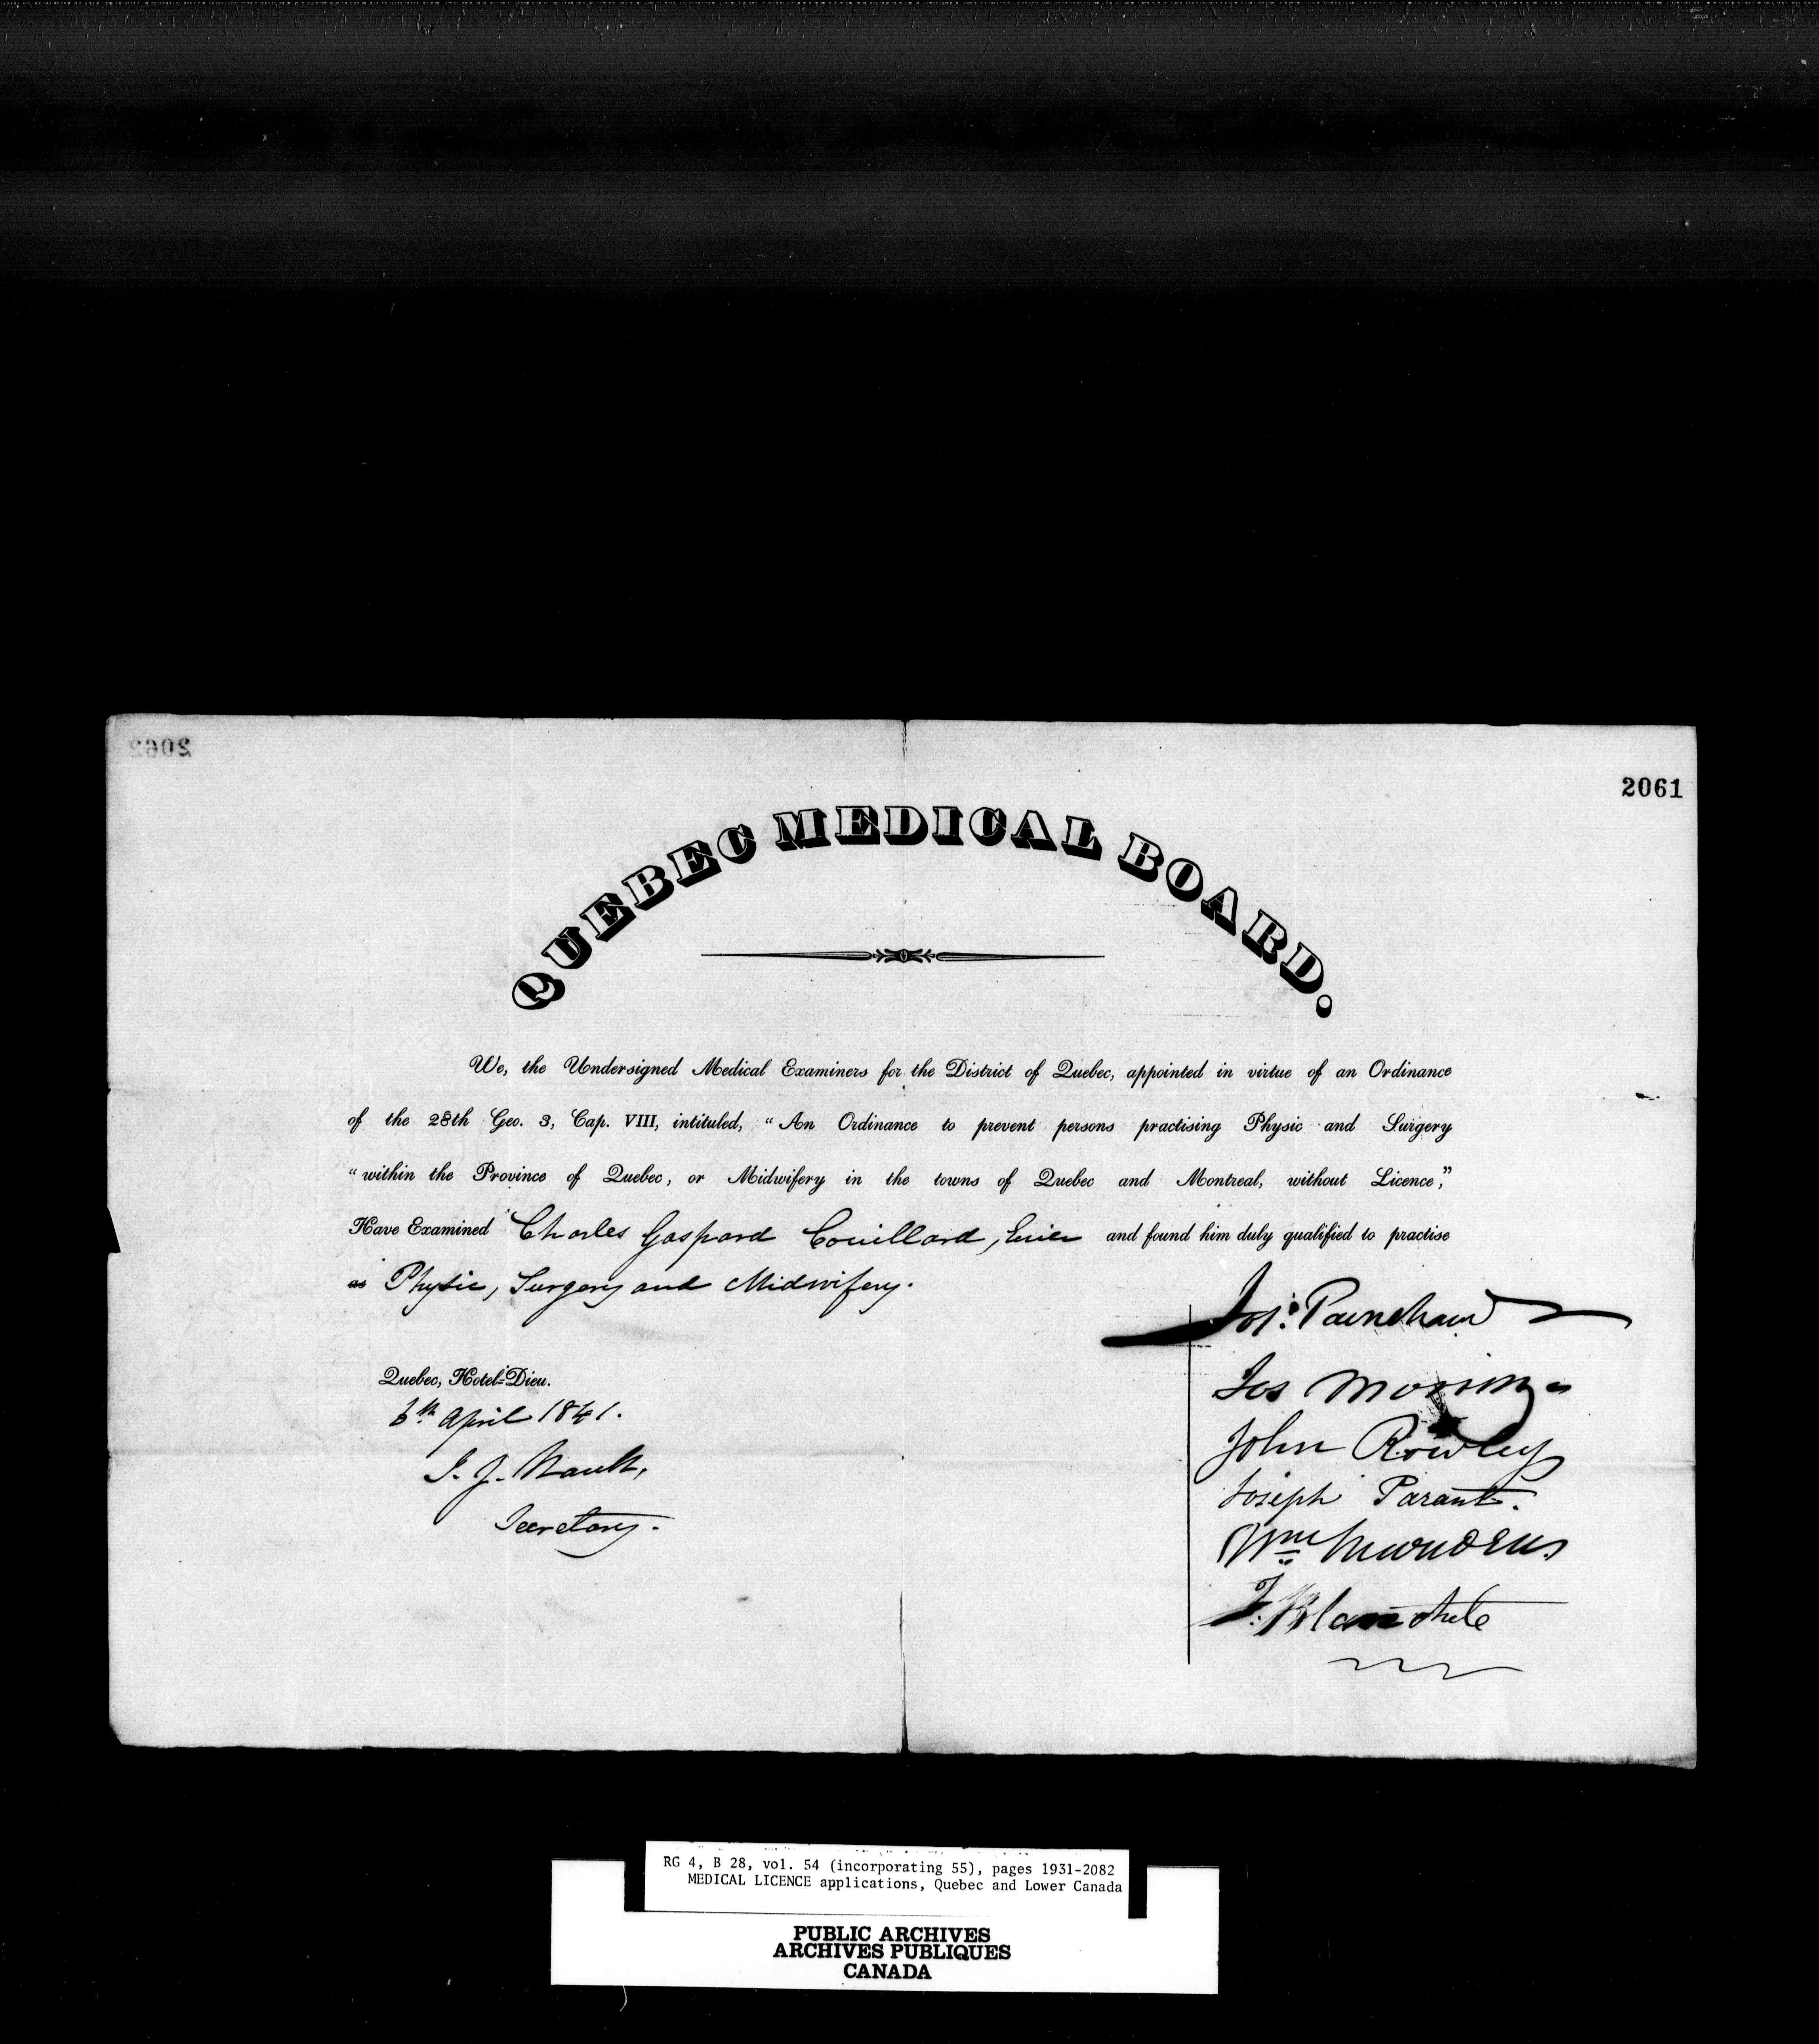 2062
2061
QUEBEC MEDICAL BOARD.
We, the Undersigned Medical Examiners for the District of Quebec, appointed in virtue of an Ordinance
of the 28th Geo. 3, Cap. VIII, intituled, "An Ordinance to prevent persons practising Physic and Surgery
"within the Province of Quebec, or Midwifery in the towns of Quebec and Montreal, without Licence",
Have Examined Charles Gaspard Couillard, and found him duly qualified to practise
as Physic, Surgery and Midwifery.
Jos: Painchaud
Quebec, Hotel-Dieu.
Jos Morrin
6th April 1841.
John Rowley
J. Z. Nault,
Joseph Parant.
Secretary.
Wm Marsden
F. Blanchet
RG 4, B 28, vol. 54 (incorporating 55), pages 1931-2082
MEDICAL LICENCE applications, Quebec and Lower Canada
PUBLIC ARCHIVES
ARCHIVES PUBLIQUES
CANADA